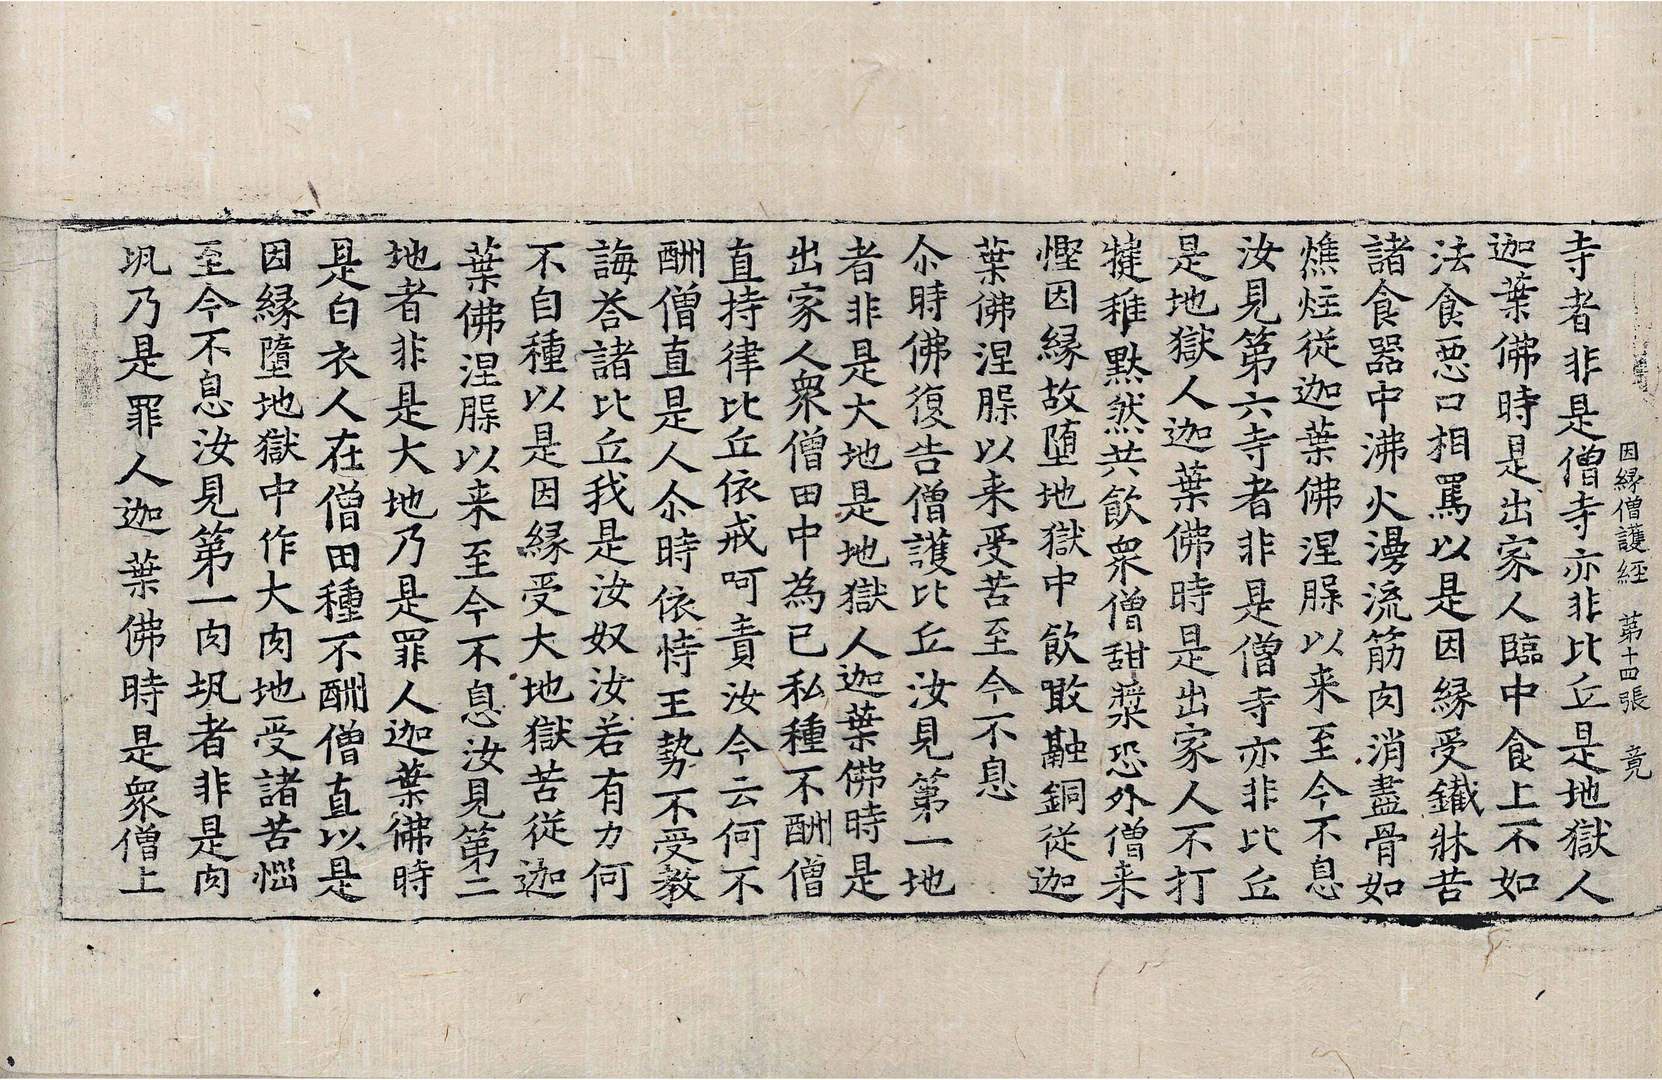 因緣僧護經 第十四張 竟
寺者非是僧寺亦非比丘是地獄人
迦葉佛時是出家人臨中食上不如
法食惡口相罵以是因緣受鐵牀苦
諸食器中沸火漫流筋肉消盡骨如
燋炷從迦葉佛涅槃以来至今不息
汝見第六寺者非是僧寺亦非比丘
是地獄人迦葉佛時是出家人不打
揵稚默然共飲衆僧甜漿恐外僧来
慳因緣故堕地獄中飲噉融銅從迦
葉佛涅槃以来受苦至今不息
尒時佛復告僧護比丘汝見第一地
者非是大地是地獄人迦葉佛時是
出家人衆僧田中為已私種不酬僧
直持律比丘依戒呵責汝今云何不
酬僧直是人尒時依恃王勢不受教
誨荅諸比丘我是汝奴汝若有力何
不自種以是因緣受大地獄苦從迦
葉佛涅槃以来至今不息汝見第二
地者非是大地乃是罪人迦葉佛時
是白衣人在僧田種不酬僧直以是
因緣墮地獄中作大肉地受諸苦惱
至今不息汝見第一肉㼚者非是肉
㼚乃是罪人迦葉佛時是衆僧上